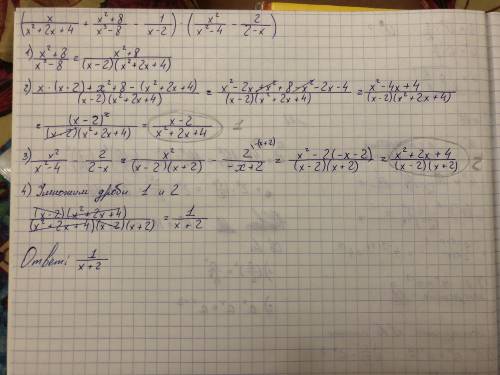 (x/(x²+2x+4) + (x²+8)/(x²-8) - 1/(x-2)) · (x²/(x²-4) - 2/(2-x))
1) (x²+8)/(x²-8) = (x²+8)/((x-2)(x²+2x+4))
2) (x·(x-2)+x²+8-(x²+2x+4))/((x-2)(x²+2x+4)) = (x²-2x+x²+8-x²-2x-4)/((x-2)(x²+2x+4)) = (x²-4x+4)/((x-2)(x²+2x+4))
= (x-2)²/((x-2)(x²+2x+4)) = (x-2)/(x²+2x+4) 1
3) x²/(x²-4) - 2/(2-x) = x²/((x-2)(x+2)) - 2^{-(x+2)}/(-x+2) = (x²-2(-x-2))/((x-2)(x+2)) = (x²+2x+4)/((x-2)(x+2)) 2
4) Умножим дроби 1 и 2
((x-2)(x²+2x+4))/((x²+2x+4)(x-2)(x+2)) = 1/(x+2)
Ответ: 1/(x+2)